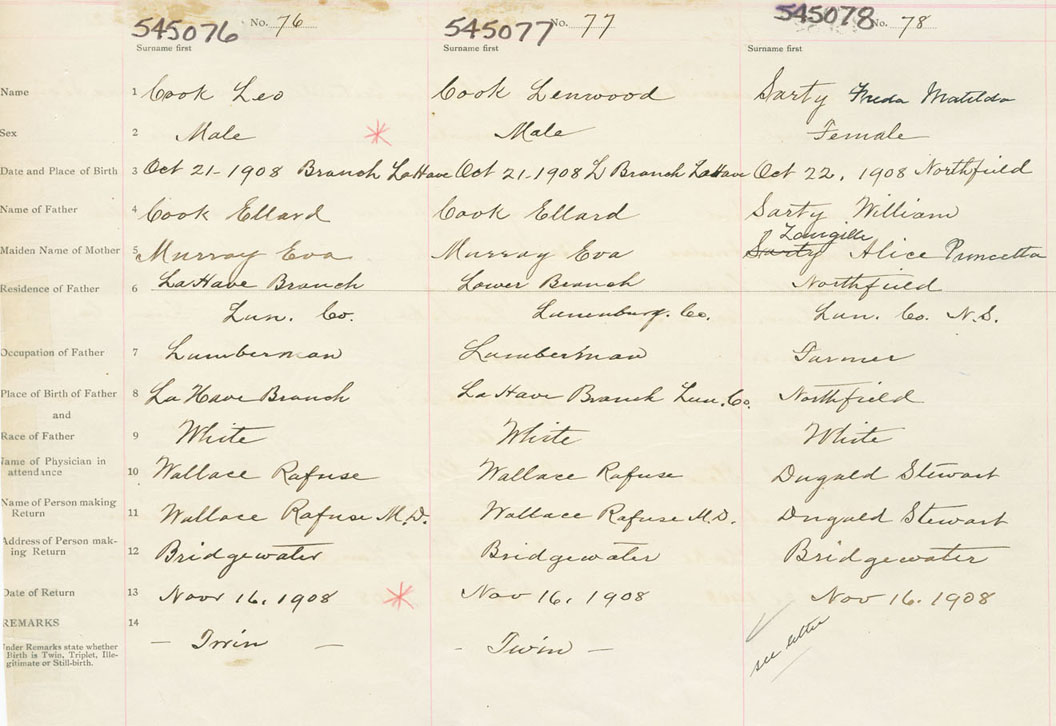 545076 No. 76 545077 No. 77 545078 No. 78
Surname first Surname first Surname first
Name 1 Cook Leo Cook Lenwood Sarty Freda Matilda
Sex 2 Male Male Female
Date and Place of Birth 3 Oct 21-1908 Branch LaHave Oct 21-1908 L Branch LaHave Oct 22, 1908 Northfield
Name of Father 4 Cook Ellard Cook Ellard Sarty William
Langille
Maiden Name of Mother 5 Murray Eva Murray Eva Sarty Alice Princetta
Residence of Father 6 LaHave Branch Lower Branch Northfield
Lun. Co. Lunenburg. Co. Lun. Co. N.S.
Occupation of Father 7 Lumberman Lumberman Farmer
Place of Birth of Father 8 La Have Branch La Have Branch Lun. Co. Northfield
and
Race of Father 9 White White White
Name of Physician in
attendance 10 Wallace Rafuse Wallace Rafuse Dugald Stewart
Name of Person making
Return 11 Wallace Rafuse M.D. Wallace Rafuse M.D. Dugald Stewart
Address of Person mak-
ing Return 12 Bridgewater Bridgewater Bridgewater
Date of Return 13 Novr 16, 1908 Nov 16, 1908 Nov 16. 1908
REMARKS 14
Under Remarks state whether
Birth is Twin, Triplet, Ille-
gitimate or Still-birth.
— Twin — - Twin — see letter